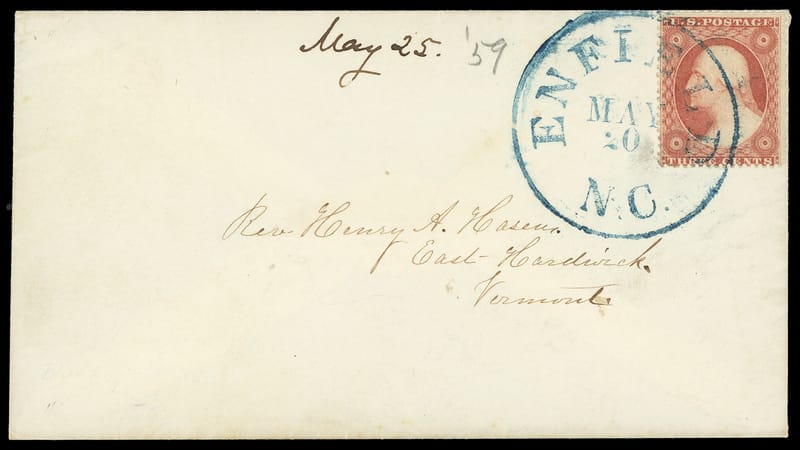 May 25. '59
U.S. POSTAGE
THREE CENTS
ENFIELD
MAY
20
N.C.
Rev. Henry A. Hazen.
East Hardwick.
Vermont.